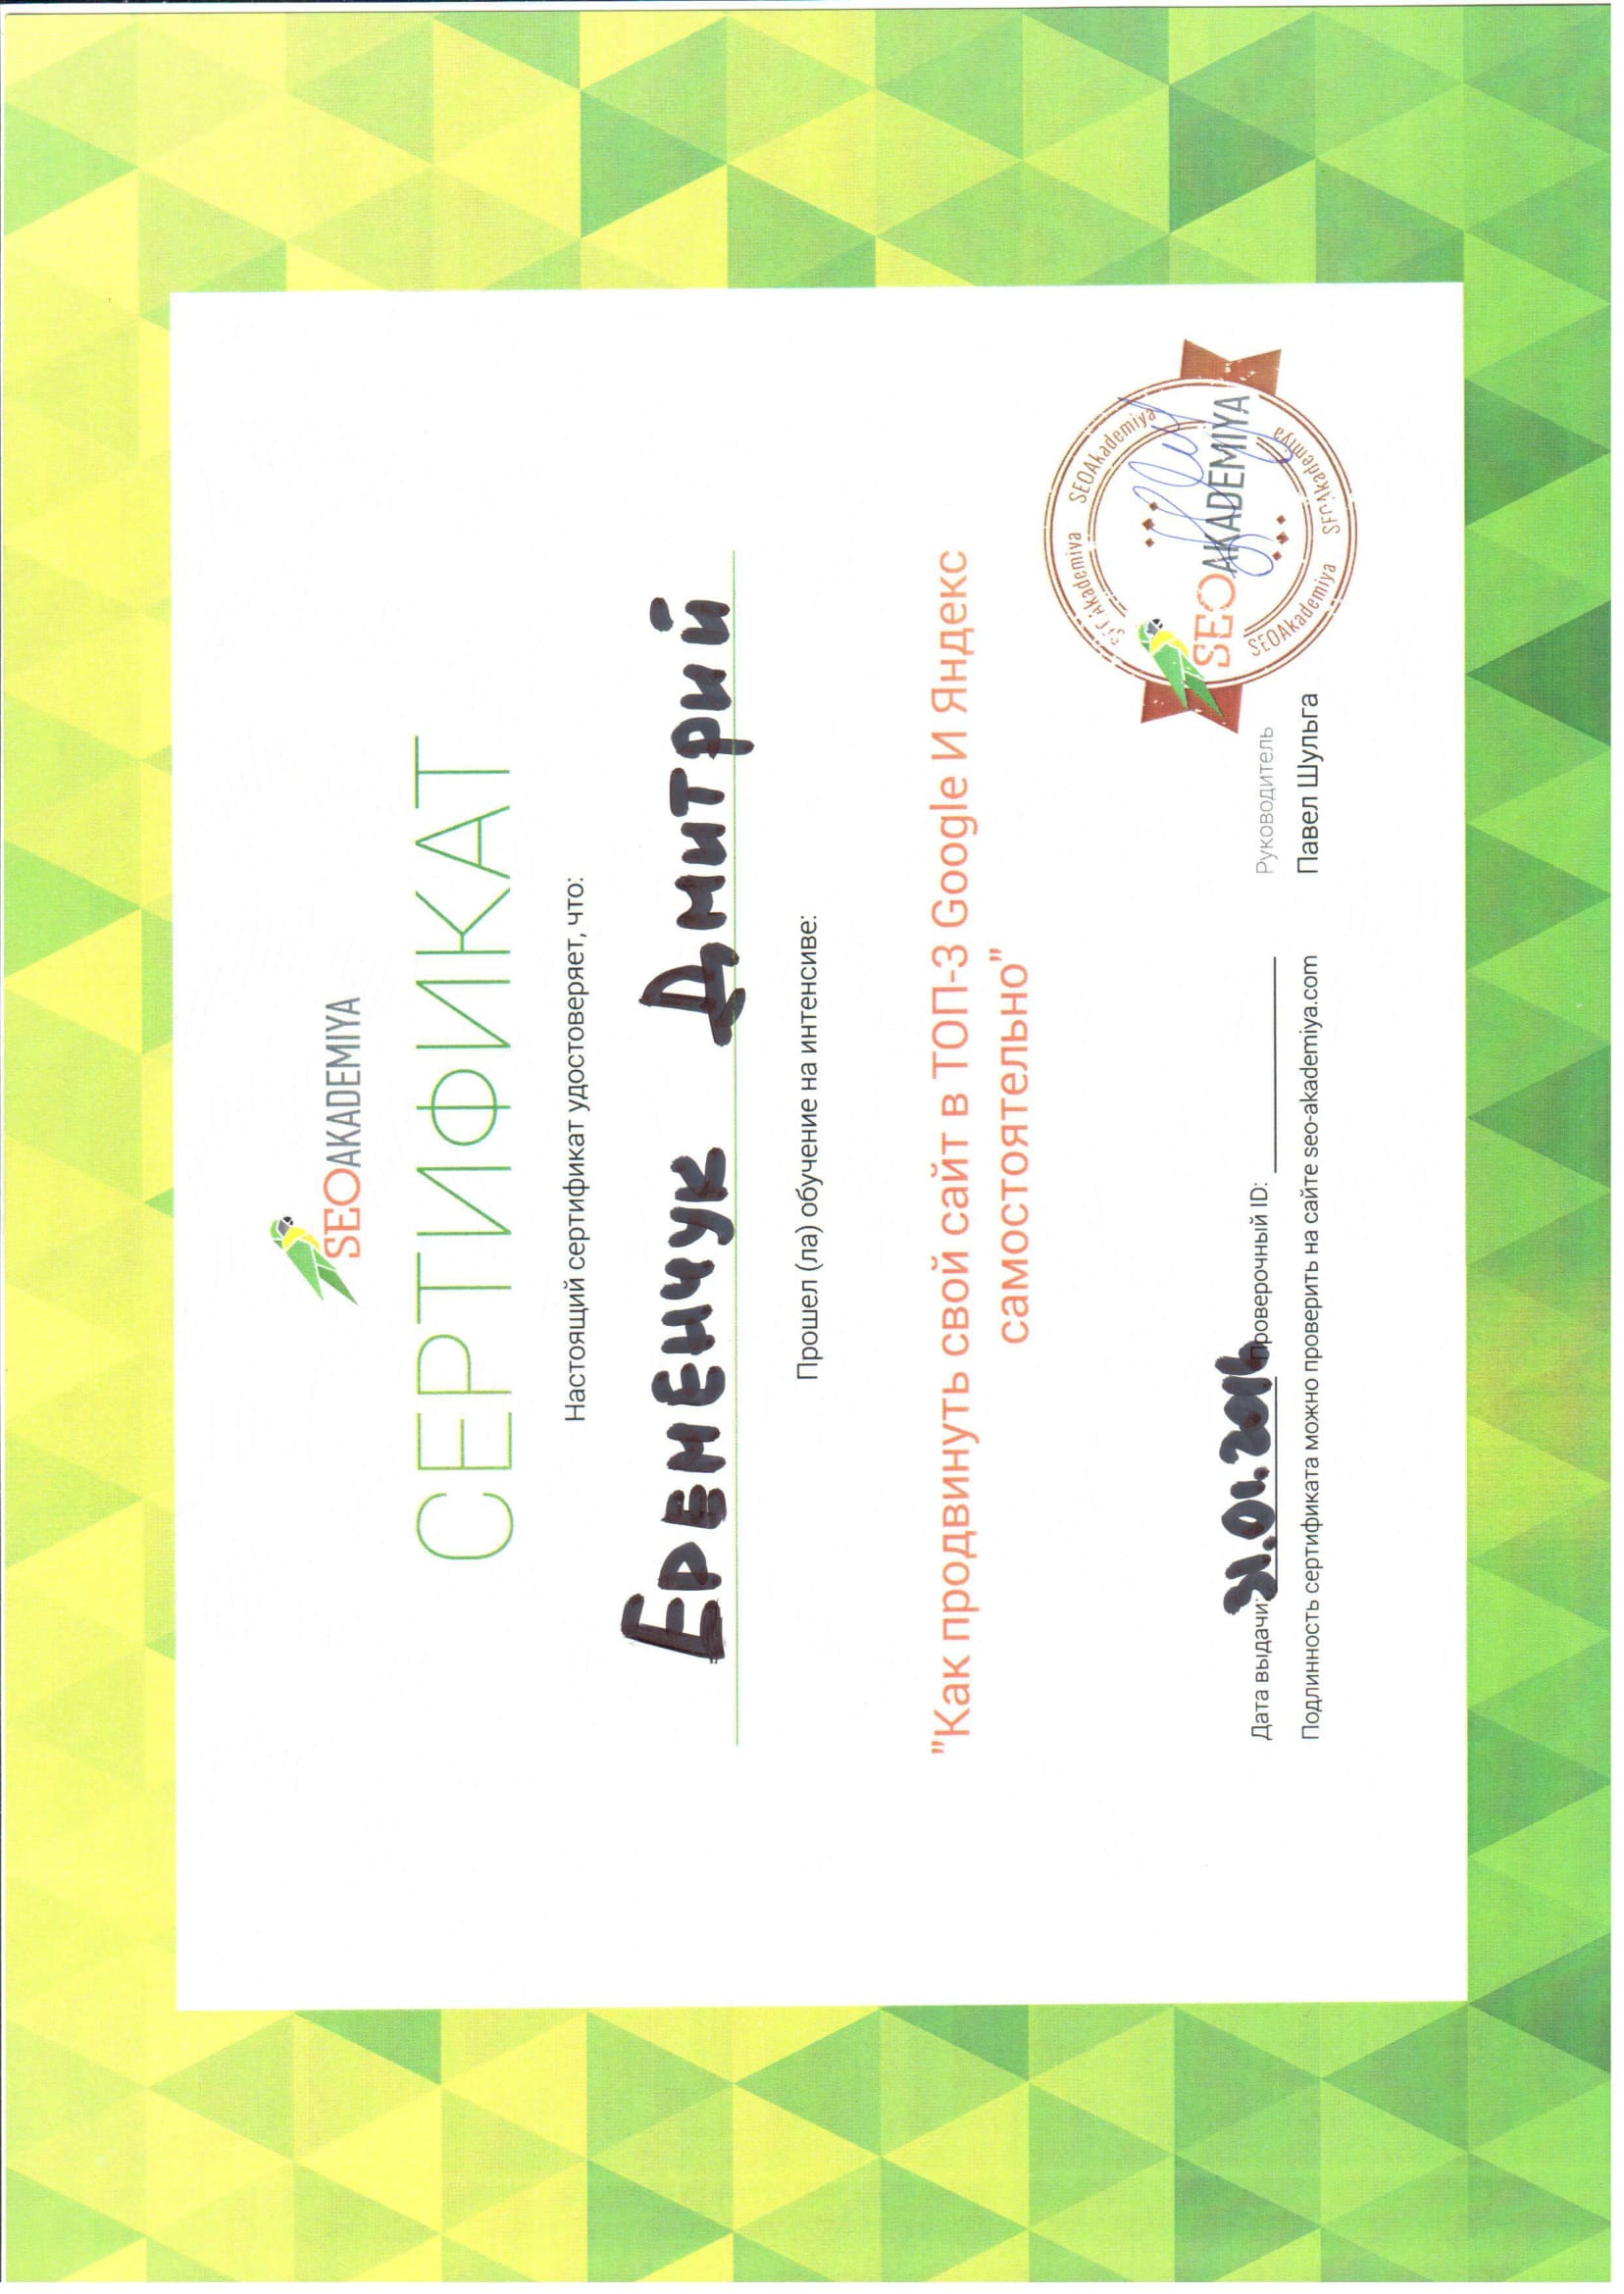 SEOAKADEMIYA
СЕРТИФИКАТ
Настоящий сертификат удостоверяет, что:
Еременчук Дмитрий
Прошел (ла) обучение на интенсиве:
"Как продвинуть свой сайт в ТОП-3 Google И Яндекс
самостоятельно"
Дата выдачи: 31.01.2016 Проверочный ID:
Подлинность сертификата можно проверить на сайте seo-akademiya.com
Руководитель
Павел Шульга
SEOAkademiya
SEOAKADEMIYA
SEOAkademiya